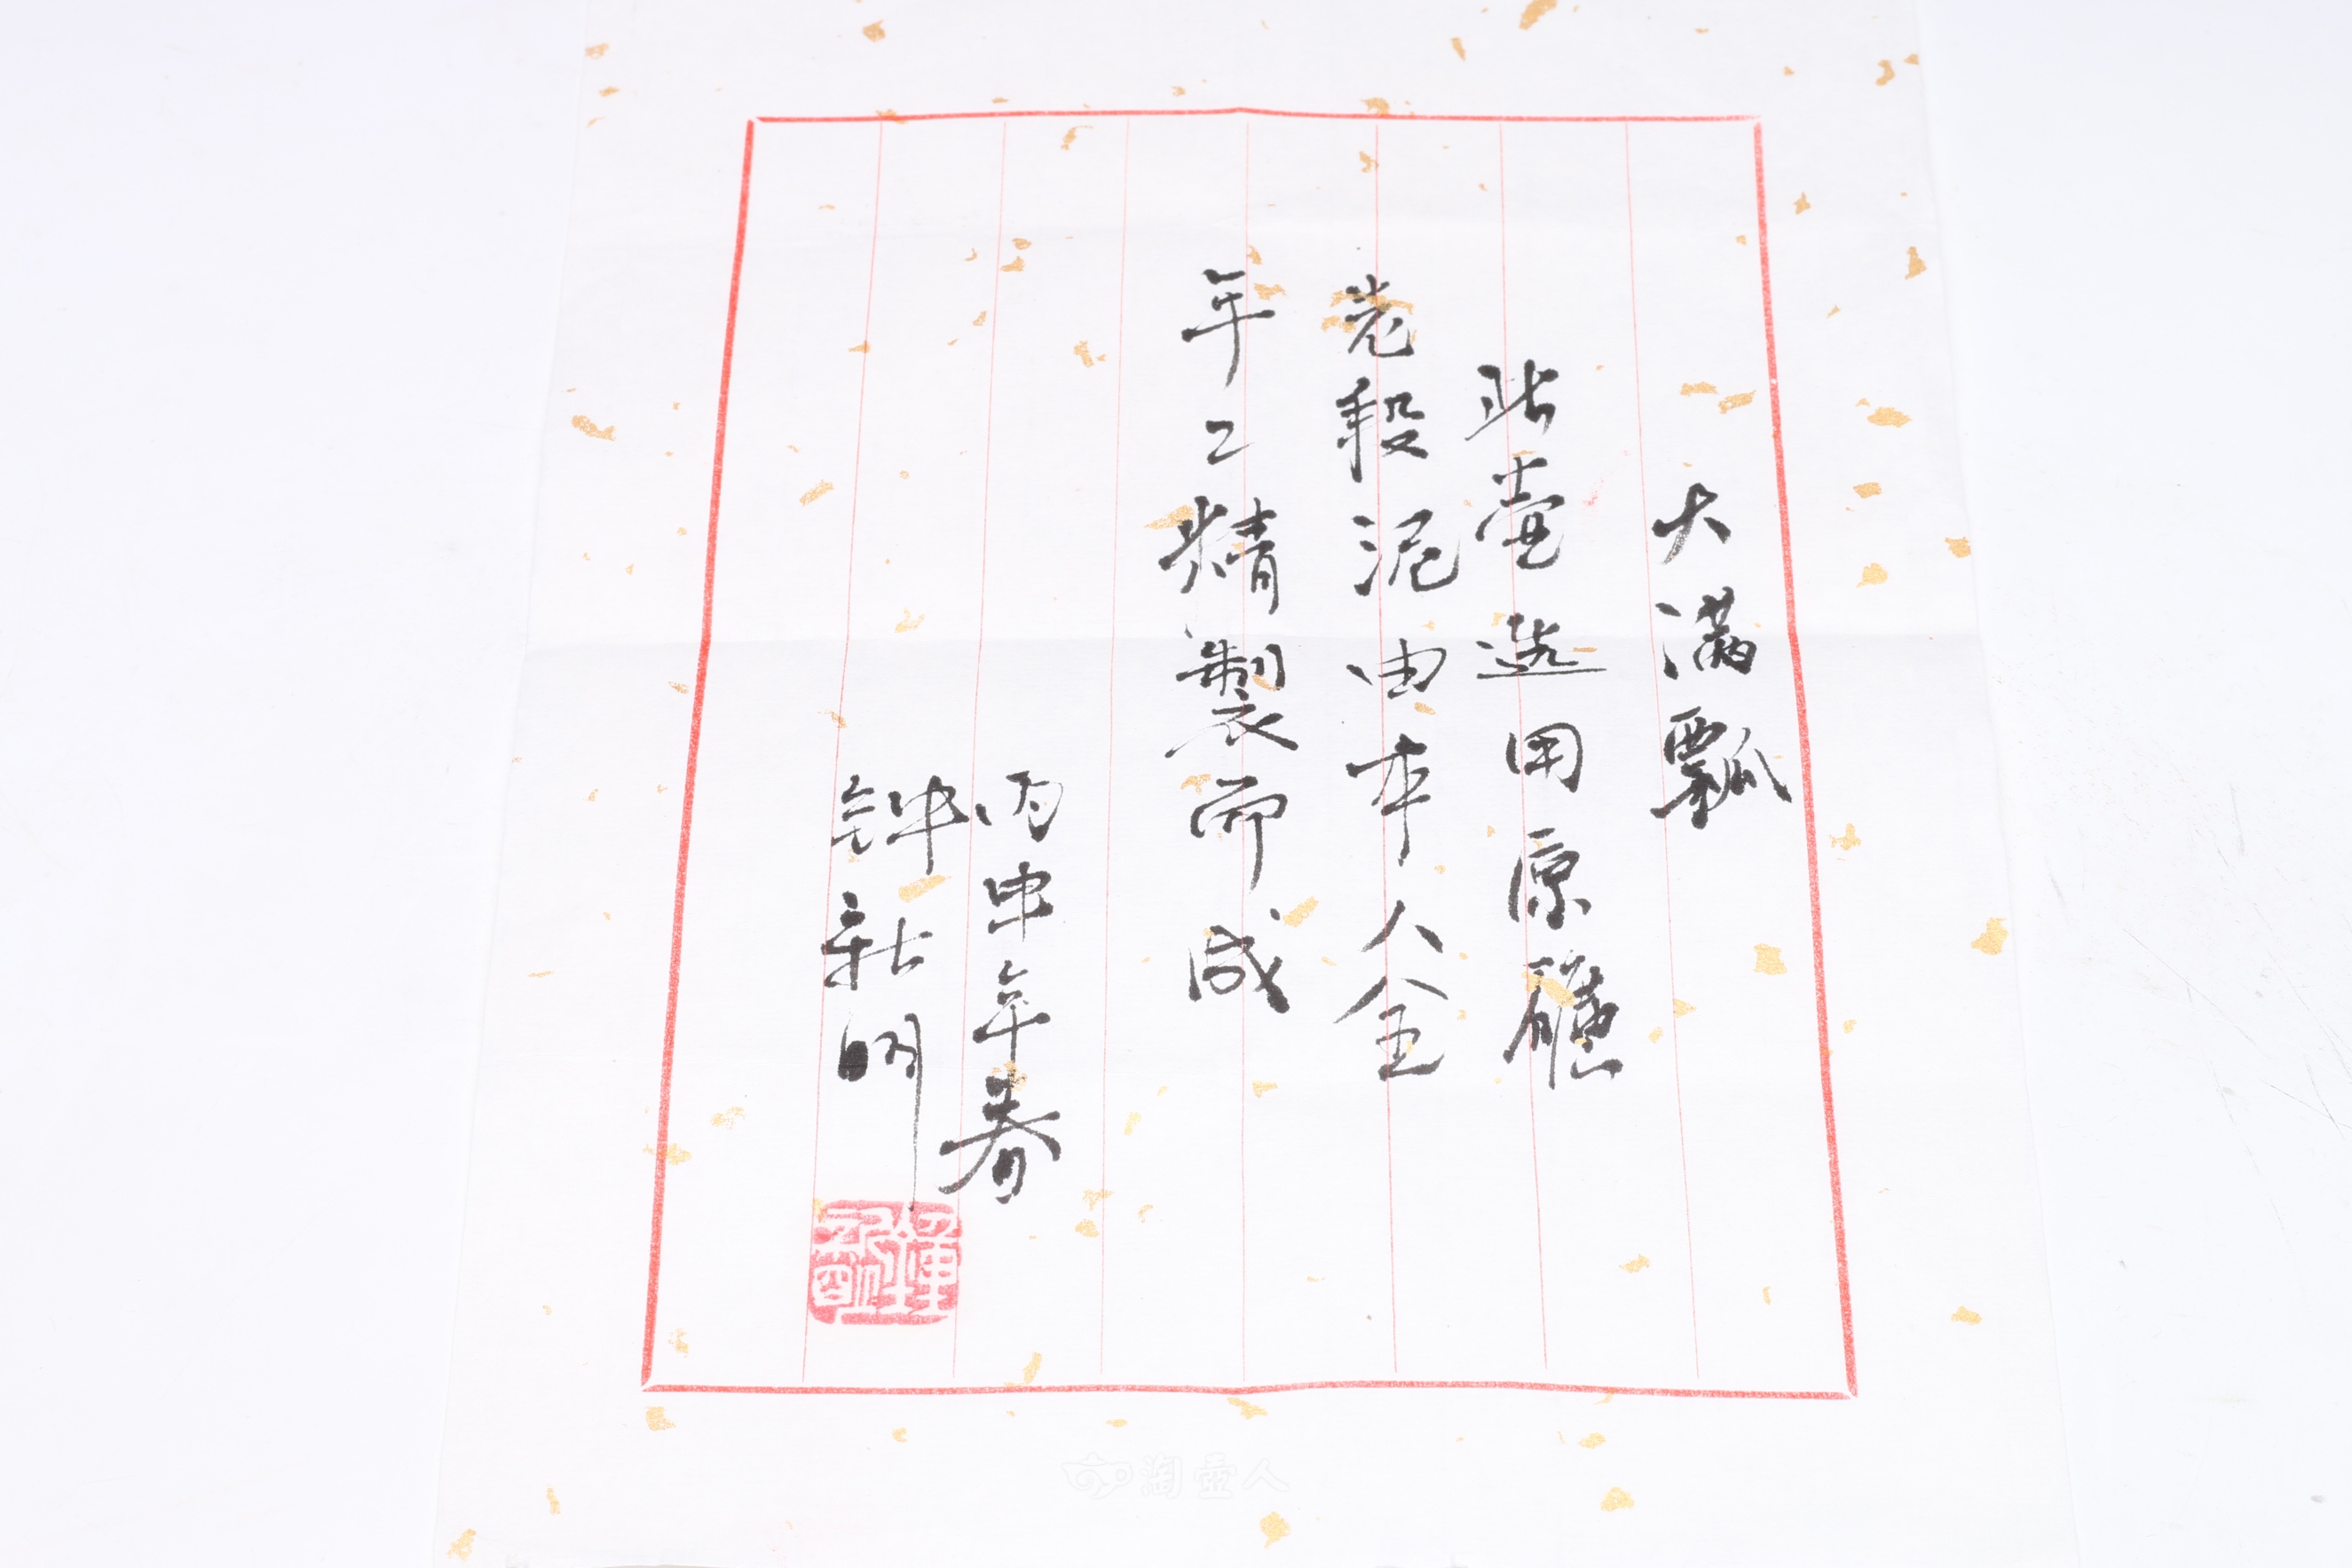 大满瓢
此壶选用原礦
老段泥由本人全
手工精製而成
丙申年春
钟新明
淘壺人